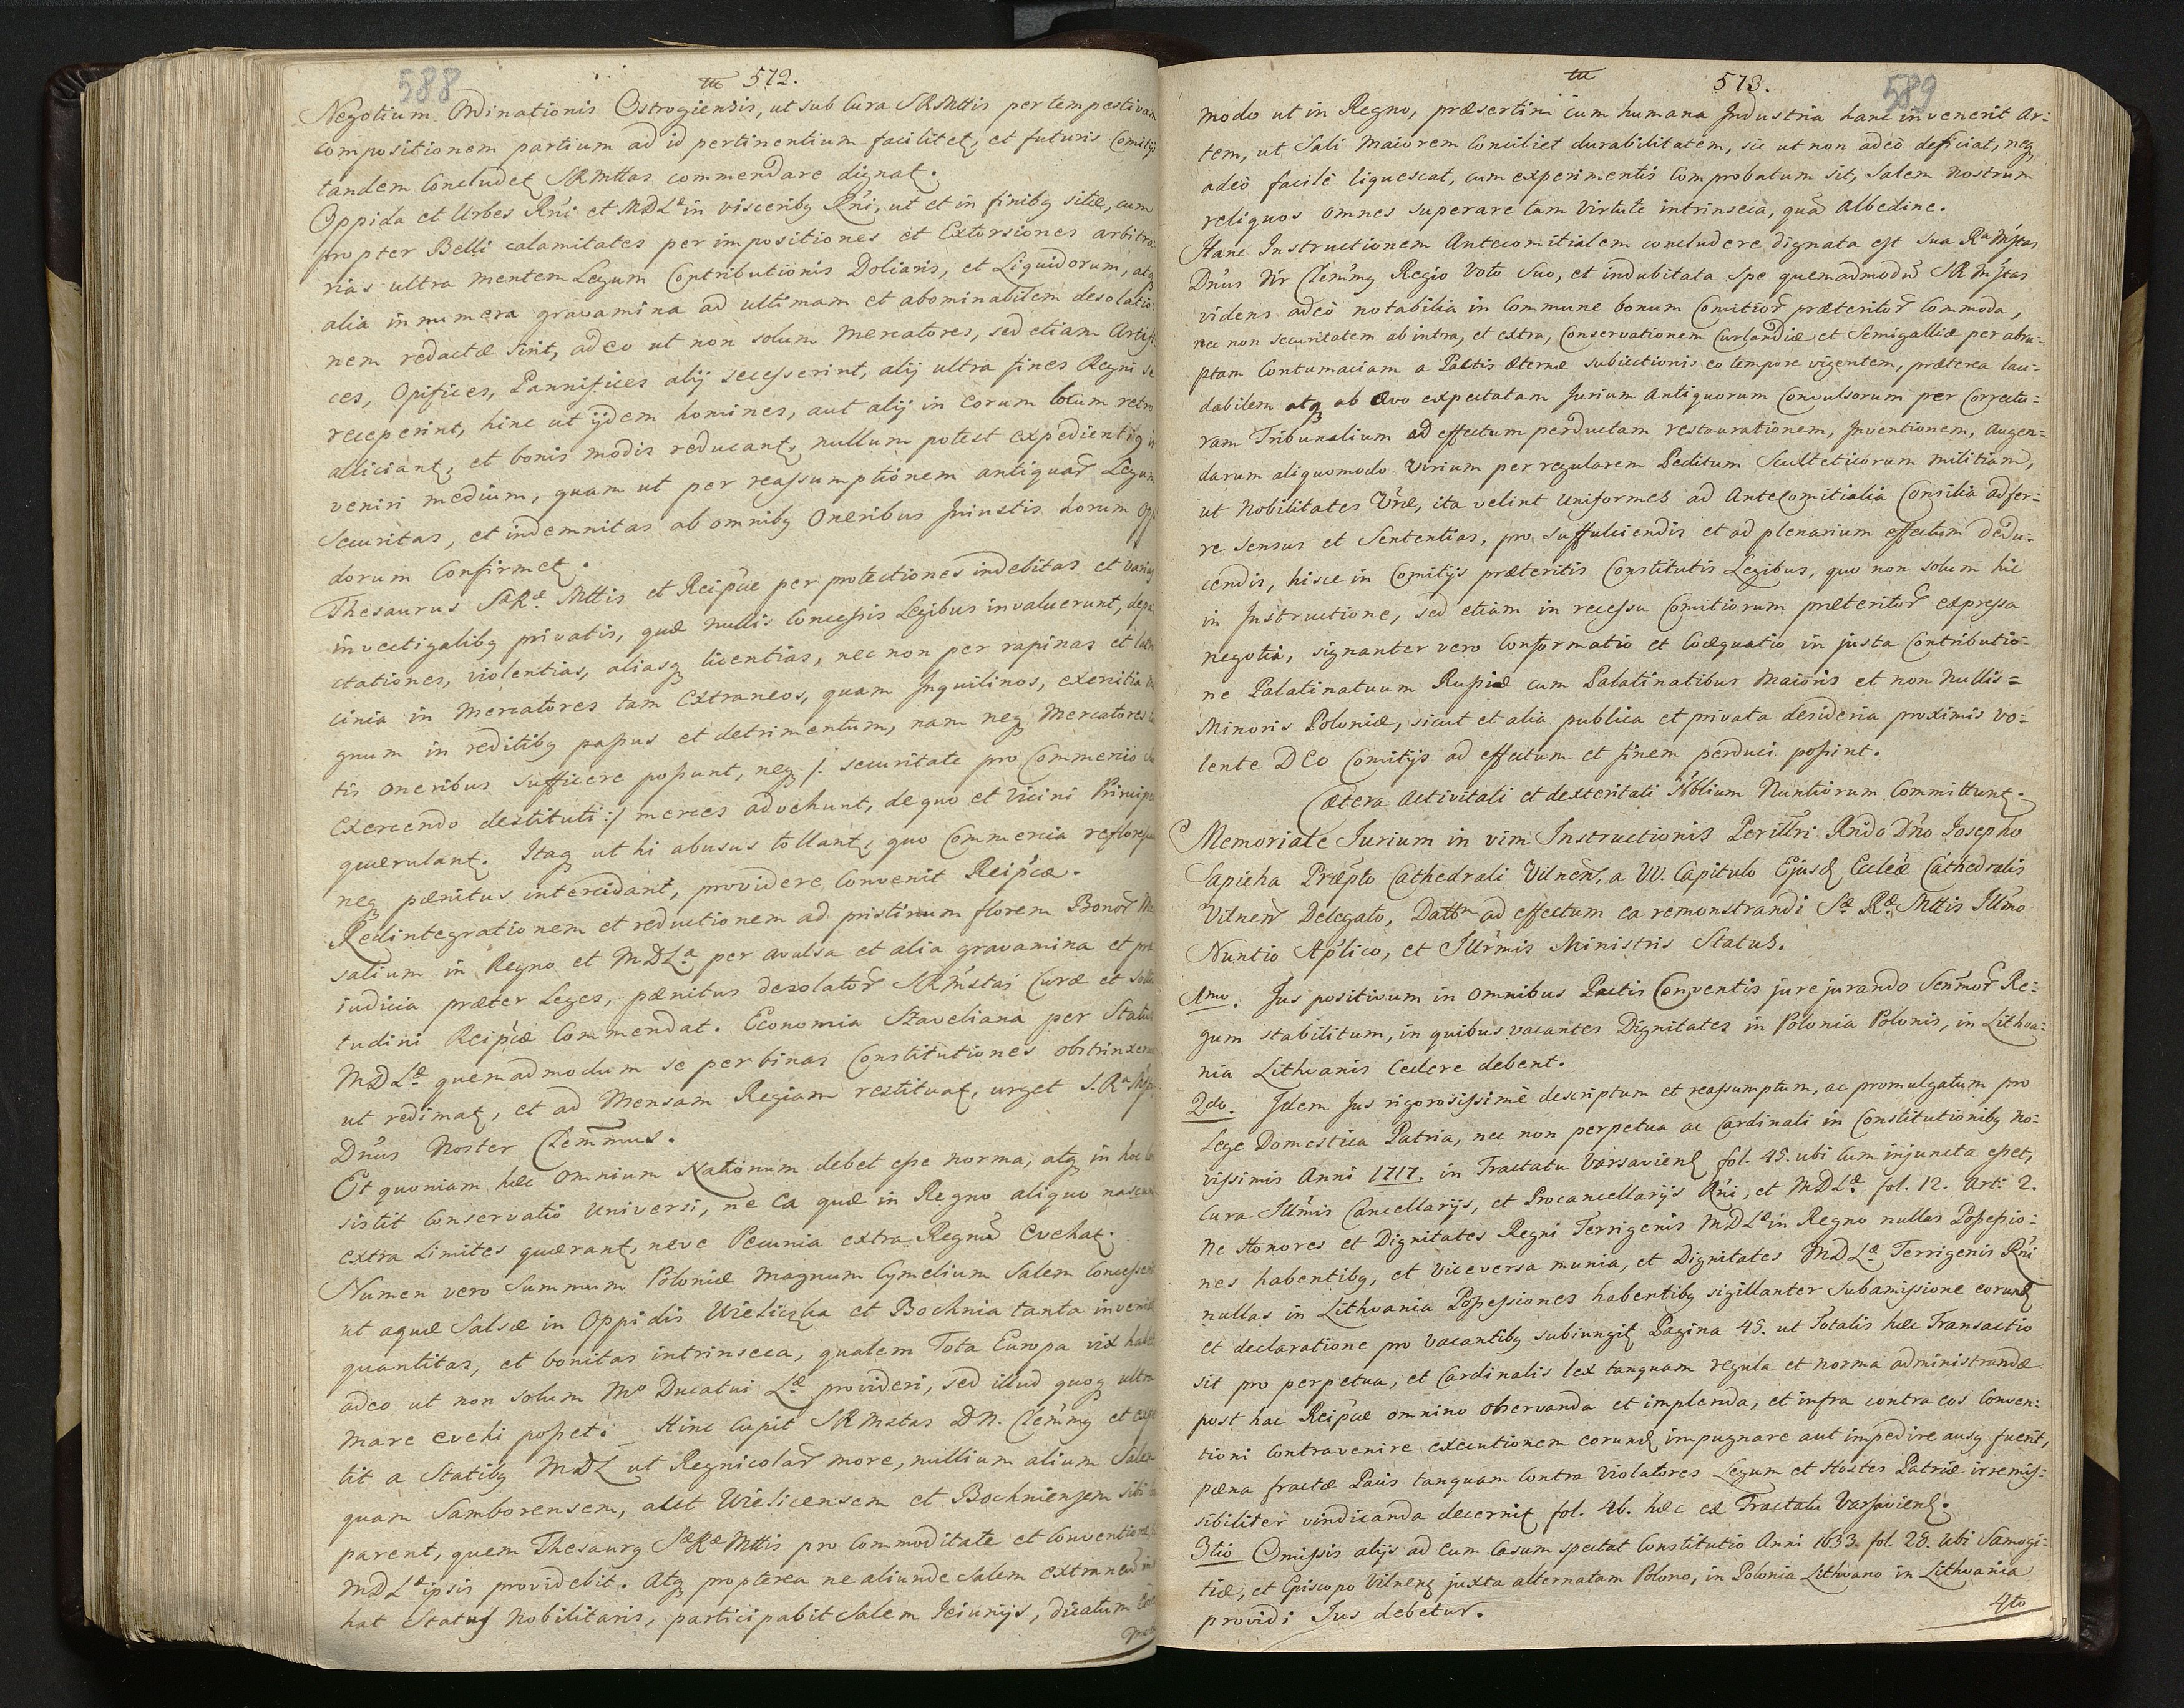 588
tu 572.
Negotium Ordinationis Ostrogiensis, ut sub Cura SRMttis per tempestivam
compositionem partium ad id pertinentium facilitetʒ, et futuris Comitijs
tandem Concludetʒ SRMttas commendare dignatʒ.
Oppida et Urbes Rn̄i et MDLæ in visceribꝫ Rn̄i, ut et in finibꝫ sitæ, cum
propter Belli calamitates per impositiones et Extorsiones arbitra-
rias ultra mentem Legum Contributionis Doliaris, et Liquidorum, atqꝫ
alia innumera gravamina ad ultimam et abominabilem desolatio-
nem redactæ sint, adeo ut non solum Mercatores, sed etiam Artifi-
ces, Opifices, Pannifices alij secesserint, alij ultra fines Regni se
receperint, hinc ut ijdem homines, aut alij in eorum locum retro
alliciantʒ, et bonis modis reducantʒ, nullum potest expedientiꝫ in
veniri medium, quam ut per reassumptionem antiquar̄ Legum
Securitas, et indemnitas ab omnibꝫ Oneribus Iniustis horum Oppi
dorum Confirmetʒ.
Thesaurus SæRæ Mttis et Reip̄cæ per protectiones indebitas et varias
in vectigalibꝫ privatis, quæ nullis Concessis Legibus invaluerunt, depa
ctationes, violentias, aliasqꝫ licentias, nec non per rapinas et latro
cinia in Mercatores tam Extraneos, quam Inquilinos, exercitia
gnum in reditibꝫ passus et detrimentum, nam neqꝫ Mercatores
tis Oneribus sufficere possunt, neqꝫ /: securitate pro Commercio
Exercendo destituti :/ merces advehunt, de quo et Vicini Principes
querulantʒ. Itaqꝫ ut hi abusus tollantʒ, quo Commercia reflorescant
neqꝫ pænitus intercidant, providere Convenit Reip̄cæ.
Redintegrationem et reductionem ad pristinum florem Bonor̄ Men
salium in Regno et MDLæ. per avulsa et alia gravamina et præ
iudicia præter Leges, pænitus desolator̄ SRM̄stas Curæ et solici
tudini Reip̄cæ Commendat. Economia Szaveliana per Status
MDLæ. quemadmodum se per binas Constitutiones obstrinxerunt
ut redimatʒ, et ad Mensam Regiam restituatʒ, urget S.Rᵃ M̄stas
Dn̄us Noster Clem̄mus.
Et quoniam hæc Omnium Nationum debet esse norma, atqꝫ in hoc
sistit Conservatio Universi, ne Ea quæ in Regno aliquo nascuntur
extra Limites quærantʒ, neve Pecunia extra Regnū Evehatʒ.
Numen vero Summum Poloniæ Magnum Cymelium Salem Concesserit
ut aquæ Salsæ in Oppidis Wieliczka et Bochnia tanta invenitʒ
quantitas, et bonitas intrinseca, qualem Tota Europa vix habet
adeo ut non solum Mº Ducatui Læ. provideri, sed illud quoqꝫ ultra
Mare evehi posset. Hinc Cupit SRMstas DN. Clem̄mꝫ et expe
tit a Statibꝫ MDL ut Regnicolar̄ more, nullium alium Salem
quam Samborensem, alit Wielicensem et Bochniensem sibi com
parent, quem Thesaurꝫ SæRæMttis pro Commoditate et Conventione
MDLæ ipsis providebit. Atqꝫ propterea ne aliunde Salem extraneū
hat Status Nobilitaris, participabit Salem Ieiunijs, dicatum
589
tu 573.
modo ut in Regno, præsertim cum humana Industria hanc invenerit Ar-
tem, ut Sali Maiorem Conciliet durabilitatem, sic ut non adeò deficiat, neqꝫ
adeò facilè liquescat, cum experimentis Comprobatum sit, Salem Nostrum
reliquos omnes superare tam Virtute intrinseca, quā Albedine.
Hanc Instructionem Antecomitialem concludere dignata est Sua RᵃM̄stas
Dn̄us N̄r Clem̄mꝫ Regio Voto Suo, et indubitata Spe quemadmodū SRM̄stas
videns adeò notabilia in Commune bonum Comitior̄ præteritor̄ Commoda,
nec non securitatem ab intra, et extra, Conservationem Curlandiæ et Semigalliæ per abru-
ptam Contumaciam a Pactis Æternæ subiectionis eo tempore vigentem, præterea lau-
dabilem atqꝫ ab ævo expectatam Iurium Antiquorum Convulsorum per Correctu-
ram Tribunalium ad effectum perductam restaurationem, Inventionem, augen-
darum aliquomodo Virium per regularem Peditum Scultetiorum militiam,
ut Nobilitates Vr̄æ, ita velint Uniformes ad Antecomitialia Consilia adfer-
re Sensus et Sententias, pro suffulciendis et ad plenarium effectum dedu-
cendis, hisce in Comitijs præteritis Constitutis Legibus, quo non solum hic
in Instructione, sed etiam in recessu Comitiorum præteritor̄ expressa
negotia, signanter vero Conformatio et Coæquatio in justa Contributio-
ne Palatinatuum Russiæ cum Palatinatibus Maioris et non Nullis-
Minoris Poloniæ, sicut et alia publica et privata desideria proximis vo-
lente DEO Comitijs ad effectum et finem perduci possint.
Cætera activitati et dexteritati N̄blium Nuntiorum Committuntʒ.
Memoriale Iurium in vim Instructionis Perill̄ri Rn̄do Dn̄o Iosepho
Sapieha Præp̄to Cathedrali Vilnen̄, a VV. Capitulo Ejusdʒ Eccl̄æ Cathedralis
Vilnen̄ Delegato, Datt̄m ad effectum ea remonstrandi Sæ Ræ Mttis Ill̄mo
Nuntio Ap̄lico, et Ill̄rmis Ministris Status.
1mo. Jus positivum in omnibus Pactis Conventis jurejurando Sen̄mor̄ Re-
gum stabilitum, in quibus vacantes Dignitates in Polonia Polonis, in Lithua-
nia Lithvanis Cedere debent.
2do. Idem Jus rigorosissimè descriptum et reassumptum, ac promulgatum pro
Lege Domestica Patria, nec non perpetua ac Cardinali in Constitutionibꝫ no-
vissimis Anni 1717. in Tractatu Varsaviensʒ fol. 45. ubi cum injuncta esset,
Cura Ill̄mis Cancellarijs, et Procancellarijs Rn̄i, et MDLæ. fol. 12. Art: 2.
ne Honores et Dignitates Regni Terrigenis MDLæ in Regno nullas Possessio-
nes habentibꝫ, et vice versa munia, et Dignitates MDLæ Terrigenis Rn̄i
nullas in Lithvania Possessiones habentibꝫ sigillanter Subamissione eorundʒ
et declaratione pro Vacantibꝫ subiungitʒ Pagina 45. ut Totalis hæc Transactio
sit pro perpetua, et Cardinalis lex tanquam regula et norma administrandæ
post hac Reip̄cæ omnino observanda et implenda, et infra contra eos Conven-
tioni Contravenire executionem eorundʒ impugnare aut impedire ausꝫ fuerit,
pæna fractæ Pacis tanquam Contra Violatores Legum et Hostes Patriæ irremis-
sibiliter vindicanda decernitʒ fol. 46. hæc ex Tractatu Varsaviensʒ.
3tio Omissis alijs ad eum Casum spectat Constitutio Anni 1633. fol. 28. Ubi Samogi-
tiæ, et Episcopo Vilnensʒ juxta alternatam Polono, in Polonia Lithvano in Lithvania
provideri Jus debetur.
4to